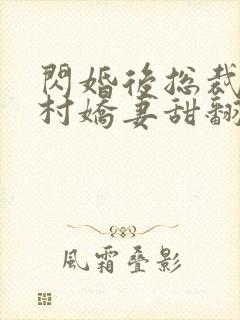 閃婚後總裁
村嬌妻甜翻
風霜叠影